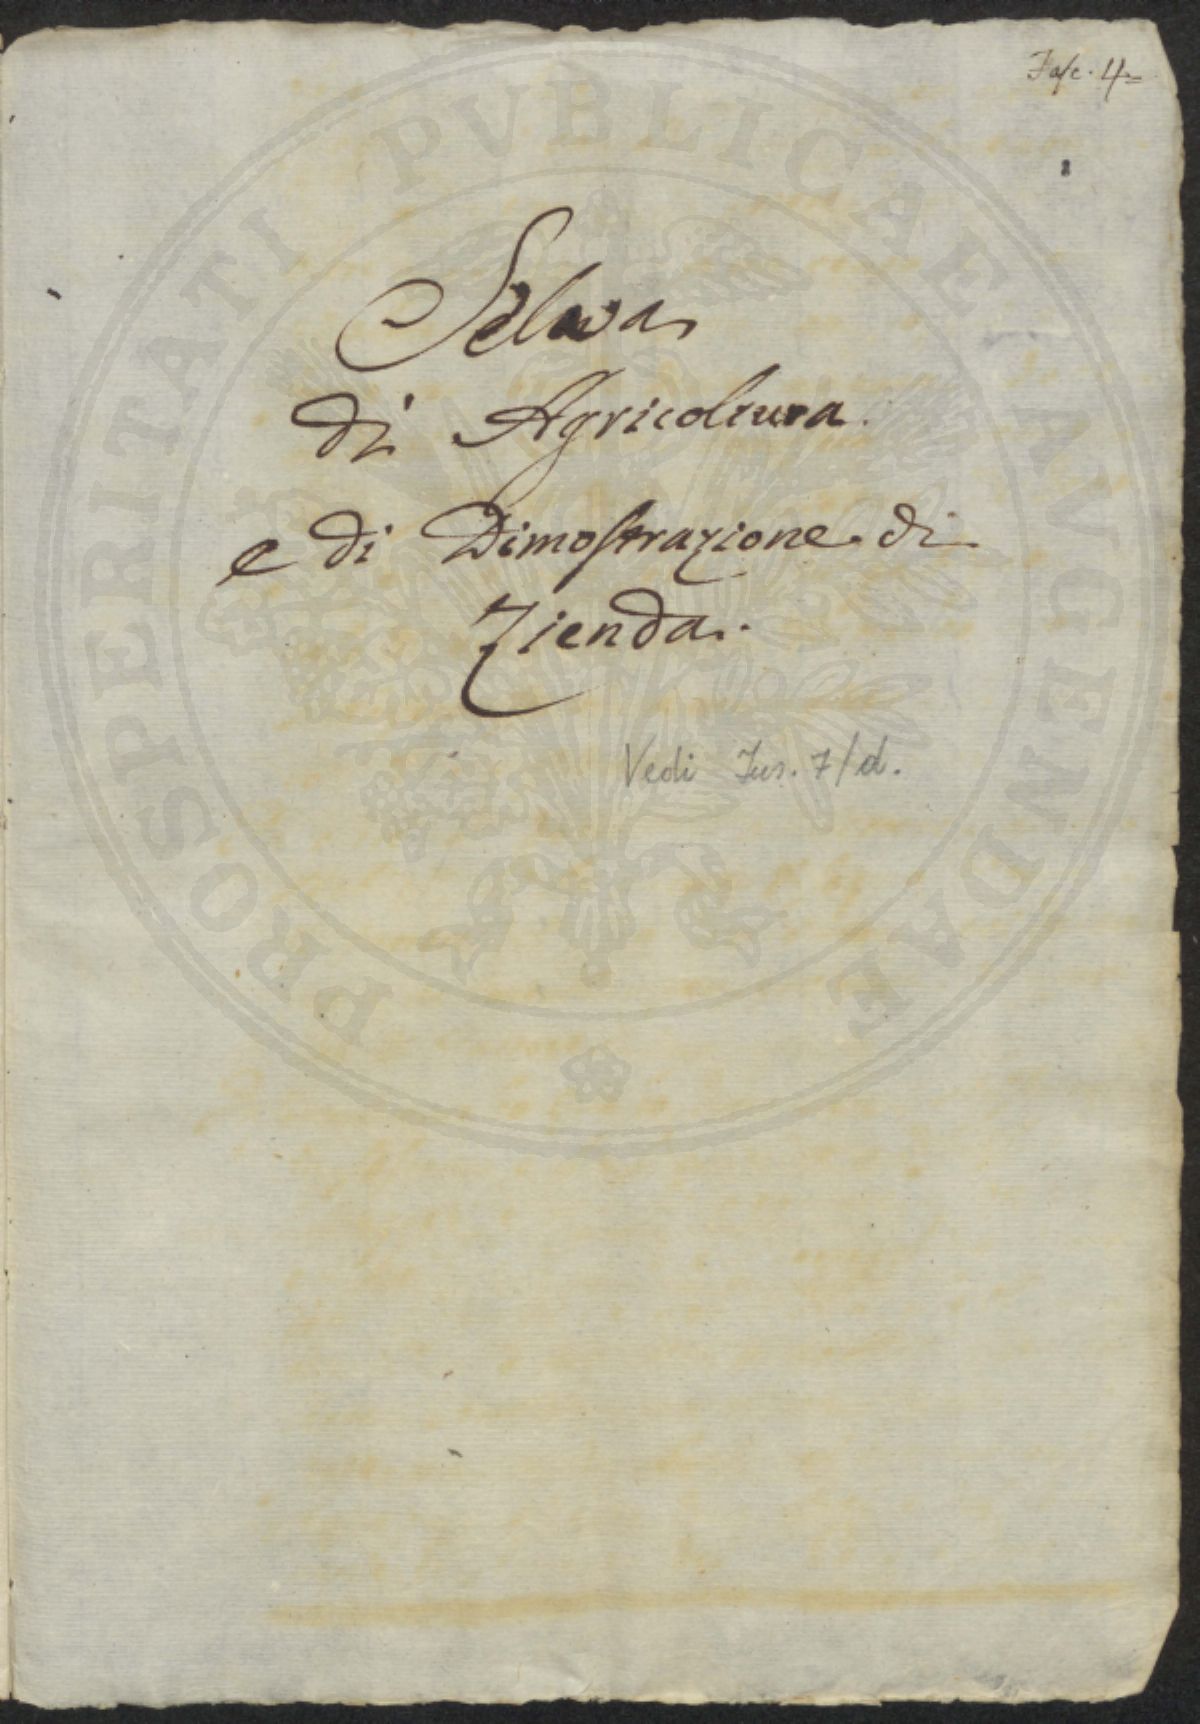 Fasc. 4
Selva
di Agricoltura
e di Dimostrazione di
Zienda.
Vedi Ins. 7/d.
PROSPERITATI PVBLICAE AVGENDAE